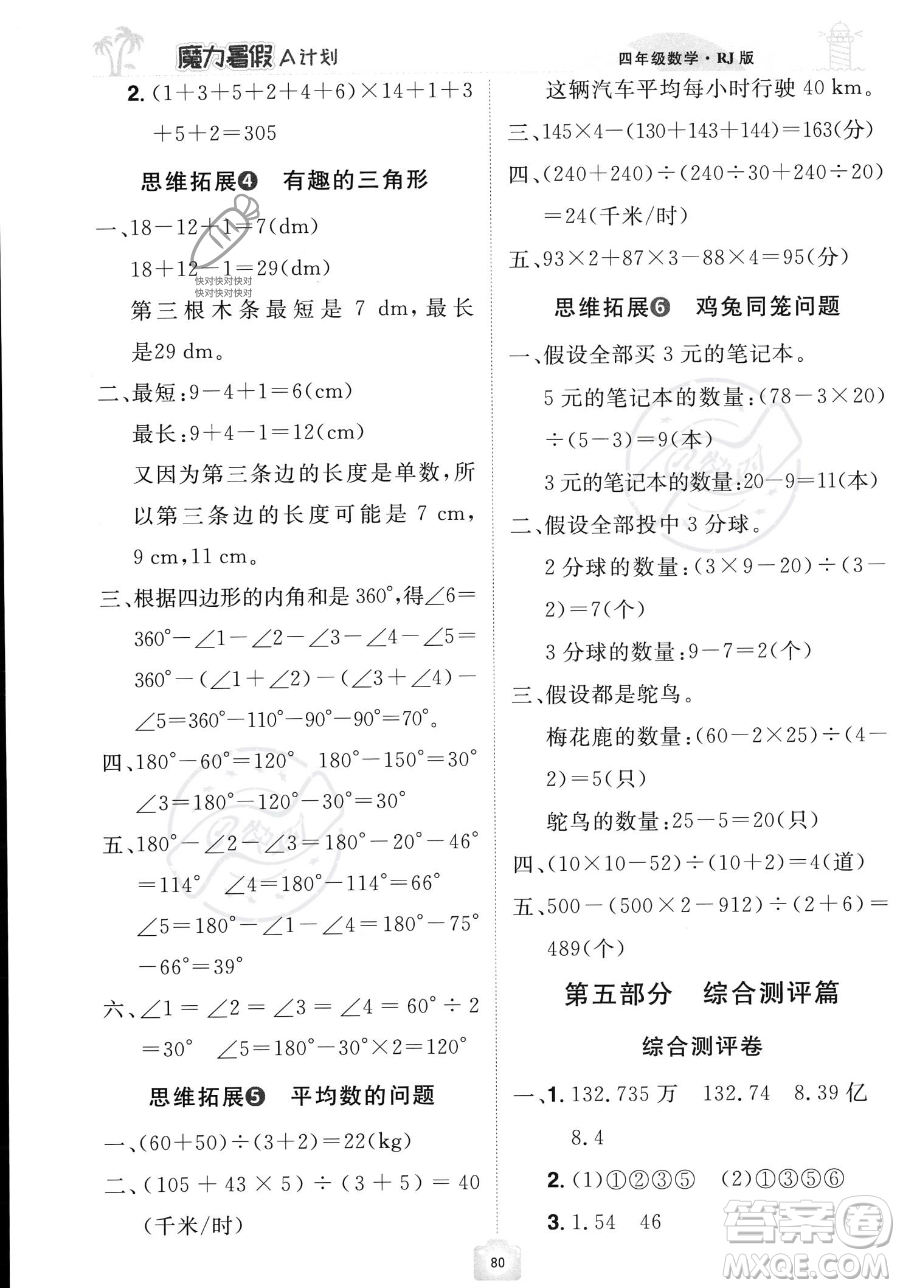 魔力暑假 A计划
四年级数学·RJ版
2. (1+3+5+2+4+6)×14+1+3
+5+2=305
思维拓展❹ 有趣的三角形
一、18-12+1=7(dm)
18+12-1=29(dm)
第三根木条最短是 7 dm，最长
是29 dm。
二、最短:9-4+1=6(cm)
最长:9+4-1=12(cm)
又因为第三条边的长度是单数,所
以第三条边的长度可能是 7 cm,
9 cm,11 cm。
三、根据四边形的内角和是 360°,得∠6=
360°-∠1-∠2-∠3-∠4-∠5=
360°-(∠1+∠2)-(∠3+∠4)-
∠5=360°-110°-90°-90°=70°。
四、180°-60°=120° 180°-150°=30°
∠3=180°-120°-30°=30°
五、180°-∠2-∠3=180°-20°-46°
=114° ∠4=180°-114°=66°
∠5=180°-∠1-∠4=180°-75°
-66°=39°
六、∠1=∠2=(180°-120°)÷2
=30° ∠3=90°-30°=60°
思维拓展❺ 平均数的问题
一、(60+50)÷(3+2)=22(kg)
二、(105+43×5)÷(3+5)=40
(千米/时)
这辆汽车平均每小时行驶 40 km。
三、145×4-(130+143+144)=163(分)
四、(240+240)÷(240÷30+240÷20)
=24(千米/时)
五、93×2+87×3-88×4=95(分)
思维拓展❻ 鸡兔同笼问题
一、假设全部买 3 元的笔记本。
5 元的笔记本的数量:(78-3×20)
÷(5-3)=9(本)
3 元的笔记本的数量:20-9=11(本)
二、假设全部投中 3 分球。
2 分球的数量:(3×9-20)÷(3-
2)=7(个)
3 分球的数量:9-7=2(个)
三、假设都是鸵鸟。
梅花鹿的数量:(60-2×25)÷(4-
2)=5(只)
鸵鸟的数量:25-5=20(只)
四、(10×10-52)÷(10+2)=4(道)
五、500-(500×2-912)÷(2+6)=
489(个)
第五部分 综合测评篇
综合测评卷
一、1. 132.735万 132.74 8.39亿
8.4
2. (1)①②③⑤ (2)①③⑤⑥
3. 1.54 46
80
快对快对快对
快对快对快对
答案卷